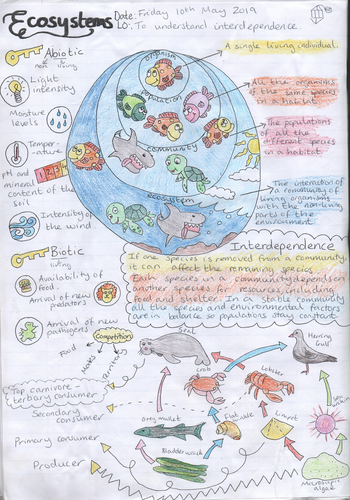 Ecosystems
Date: Friday 10th May 2019
LO: To understand interdependence.
Abiotic
non living
Light
intensity
Moisture
levels
Temper-
-ature
pH and
mineral
content of the
soil
Intensity of
the wind
Biotic
living
Availability of
food
Arrival of new
predators
Arrival of new
pathogens
organism
population
community
ecosystem
A single living individual.
All the organisms
of the same species
in a habitat
The populations
of all the
different species
in a habitat
The interaction of
a community of
living organisms
with the non-living
parts of the
environment.
Interdependence
If one species is removed from a community
it can affect the remaining species
Each species in a community depends on
another species for resources, including
food and shelter. In a stable community
all the species and environmental factors
are in balance so populations stay constant
Competition
Food
Mates
Territory
Seal
Herring
Gull
Crab
Lobster
Top carnivore -
tertiary consumer
Secondary
consumer
Primary consumer
Producer
Grey mullet
Flat
Bladderwrack
Microscopic
algae